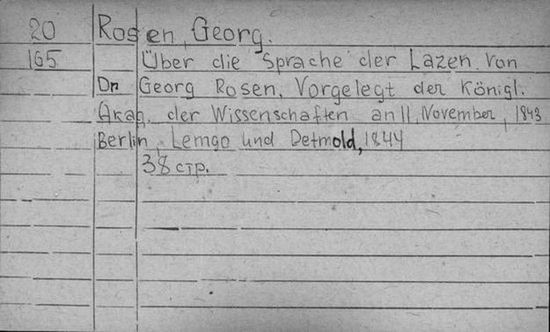 20 Rosen, Georg.
165 Über die Sprache der Lazen. Von
Dr Georg Rosen, Vorgelegt der Königl.
Akad. der Wissenschaften an 11, November, 1843
Berlin, Lemgo und Detmold, 1844
38 стр.